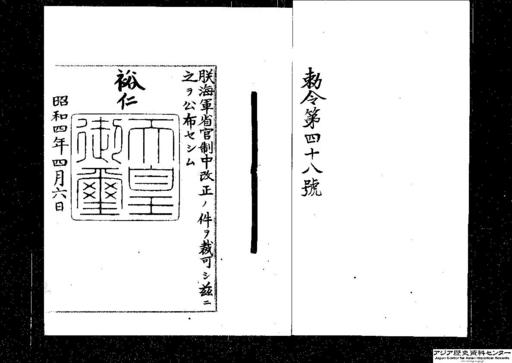 勅令第四十八號
朕海軍省官制中改正ノ件ヲ裁可シ茲ニ
之ヲ公布セシム
裕仁
天皇
御璽
昭和四年四月六日
アジア歴史資料センター
Japan Center for Asian Historical Records